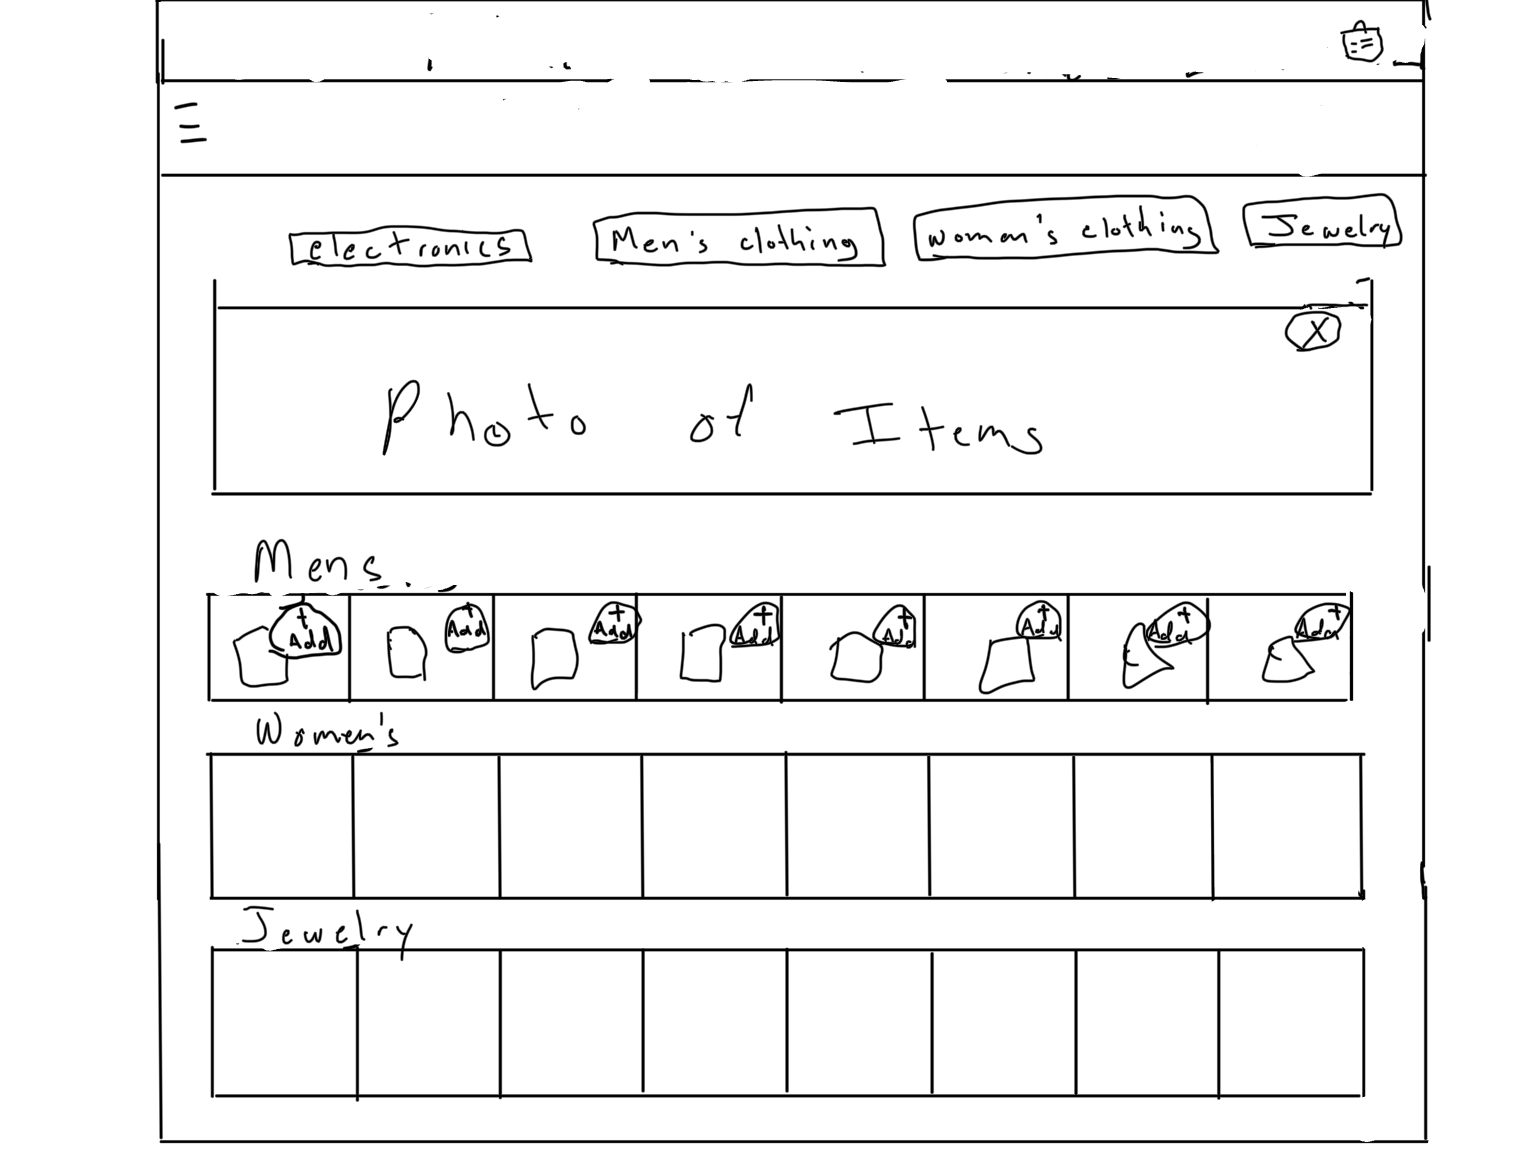 electronics
Men's clothing
women's clothing
Jewelry
X
Photo of Items
Mens
+
Add
+
Add
+
Add
+
Add
+
Add
+
Add
+
Add
+
Add
Women's
Jewelry